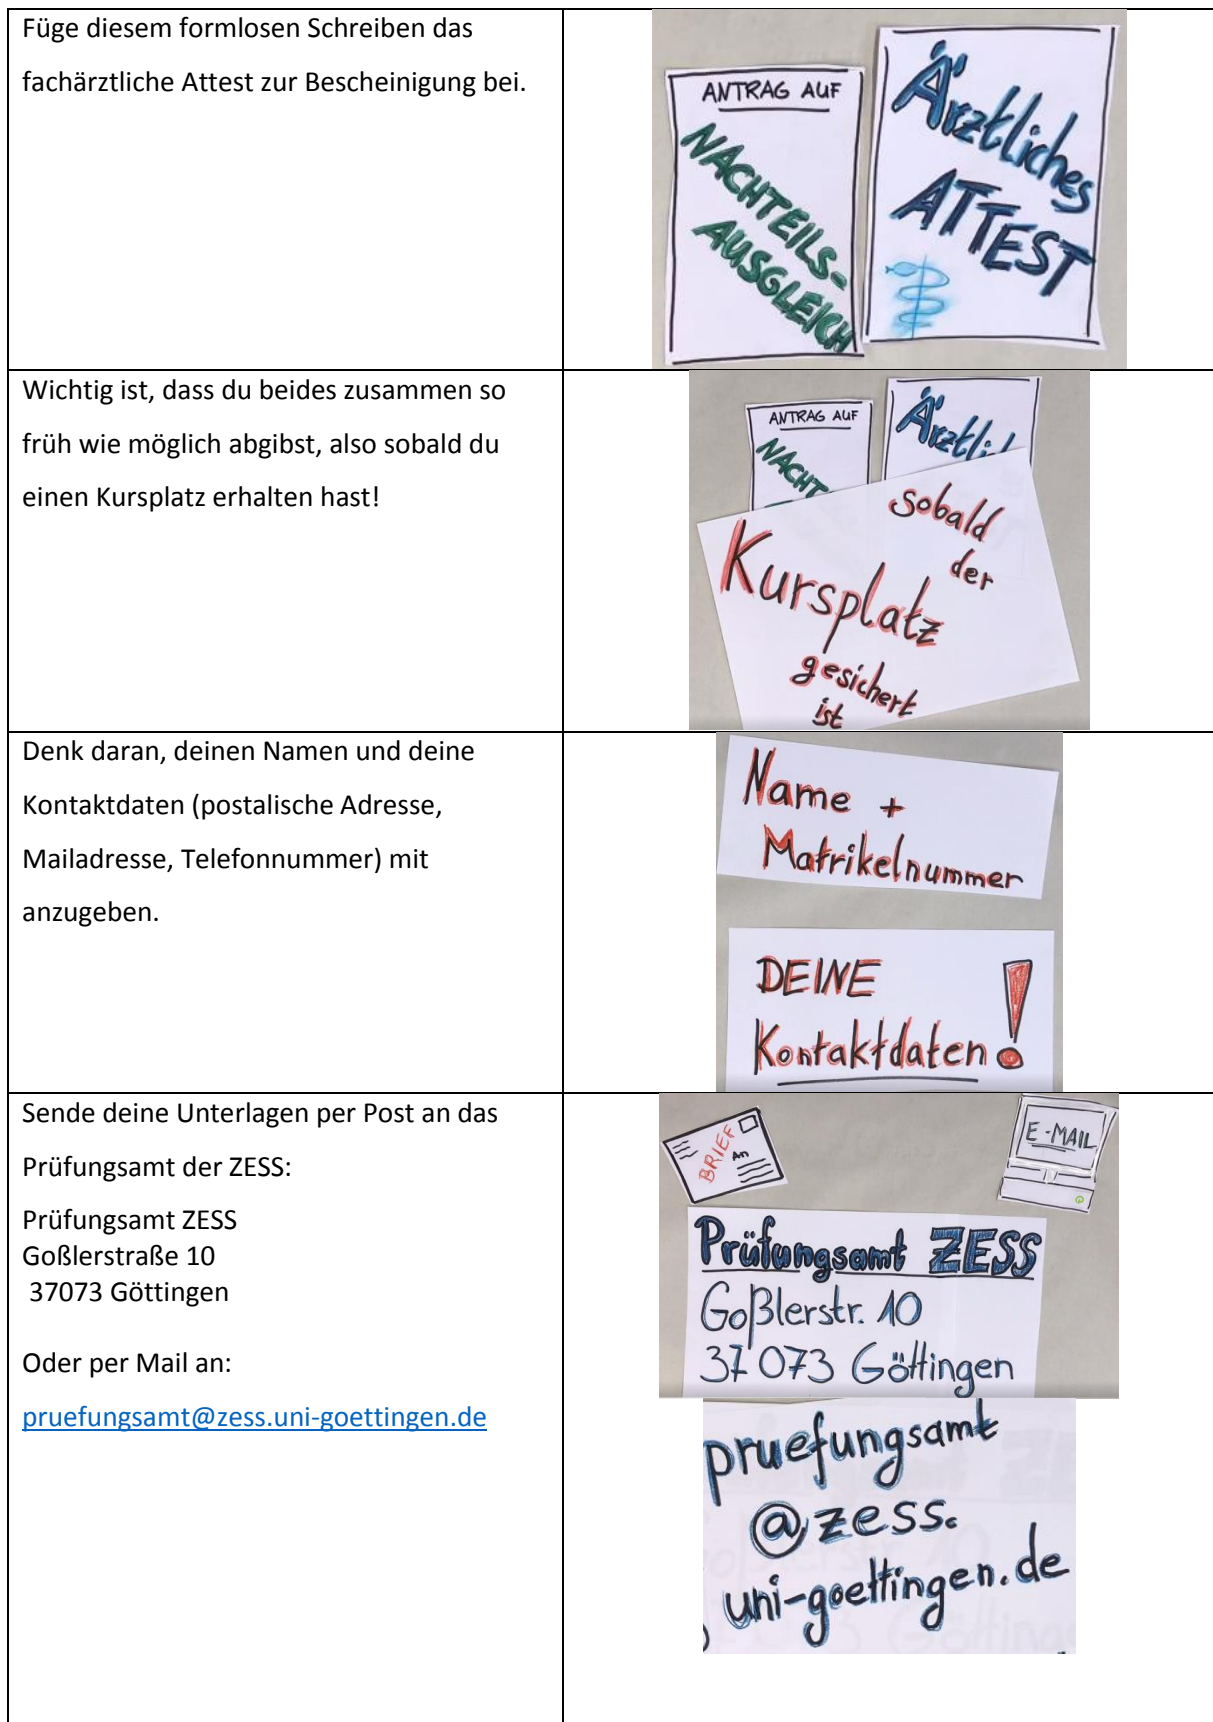 Füge diesem formlosen Schreiben das
fachärztliche Attest zur Bescheinigung bei.
ANTRAG AUF
NACHTEILS-
AUSGLEICH
Ärztliches
ATTEST
Wichtig ist, dass du beides zusammen so
früh wie möglich abgibst, also sobald du
einen Kursplatz erhalten hast!
ANTRAG AUF
NACHT
Ärztlich
sobald
der
Kursplatz
gesichert
ist
Denk daran, deinen Namen und deine
Kontaktdaten (postalische Adresse,
Mailadresse, Telefonnummer) mit
anzugeben.
Name +
Matrikelnummer
DEINE
Kontaktdaten!
Sende deine Unterlagen per Post an das
Prüfungsamt der ZESS:
Prüfungsamt ZESS
Goßlerstraße 10
37073 Göttingen
Oder per Mail an:
pruefungsamt@zess.uni-goettingen.de
BRIEF
An
E-MAIL
Prüfungsamt ZESS
Goßlerstr. 10
37073 Göttingen
pruefungsamt
@zess.
uni-goettingen.de